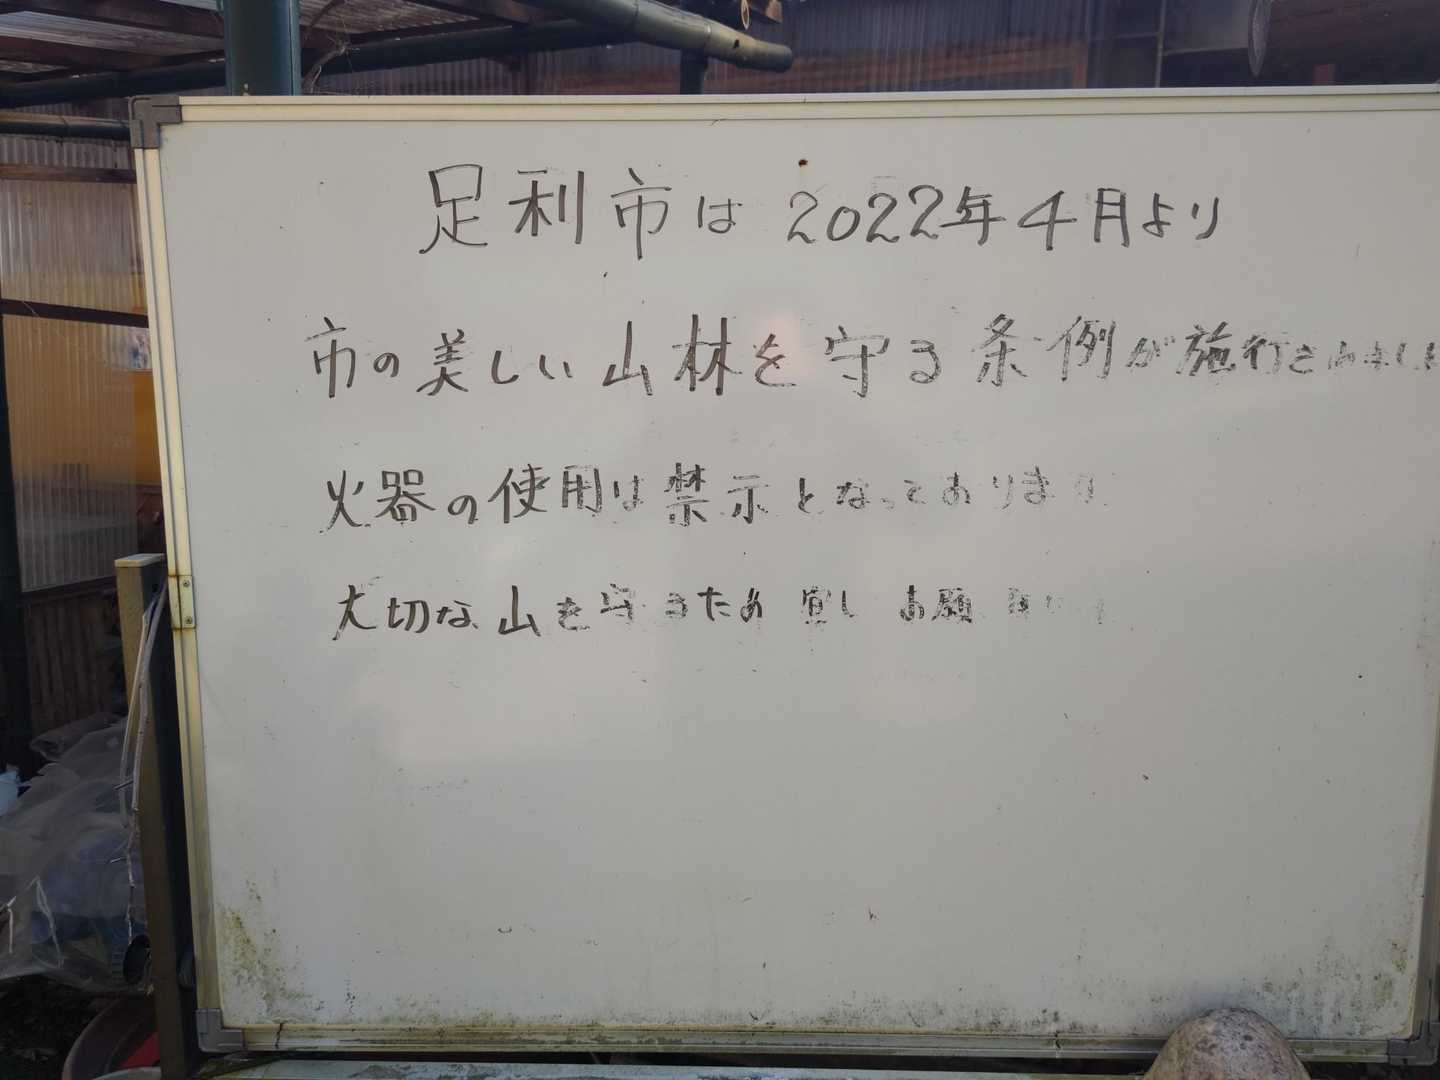 足利市は 2022年4月より
市の美しい山林を守る条例が施行されました
火器の使用は禁示となっております
大切な山を守るため 宜し お願